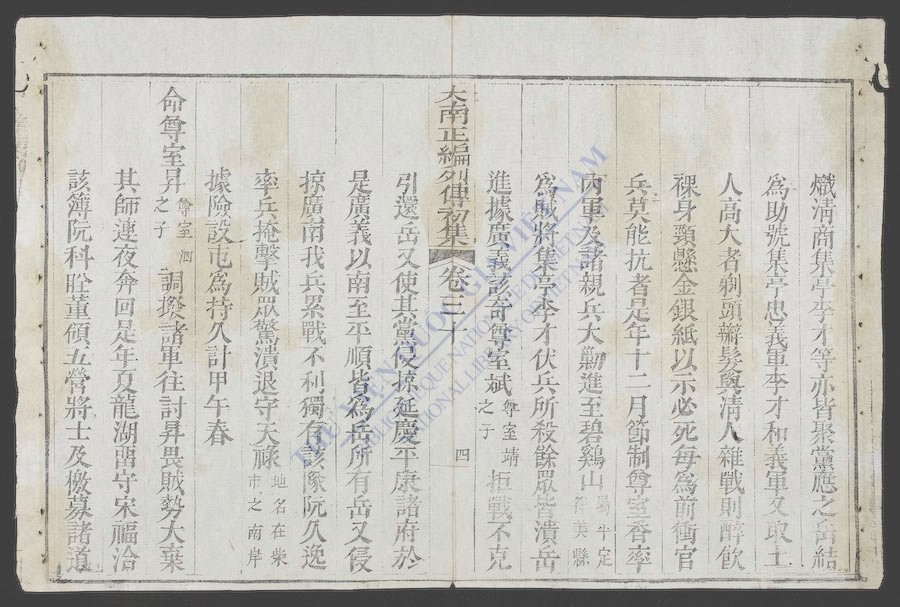 熾淸商集亭李才等亦皆聚黨應之岳結
爲助號集亭忠義軍李才和義軍又取土
人高大者剃頭辮髮與淸人雜戰則醉飮
裸身頸懸金銀紙以示必死每爲前衝官
兵莫能抗者是年十二月節制尊室香率
內軍及諸親兵大勦進至碧鷄山屬平定
符美縣
爲賊將集亭李才伏兵所殺餘眾皆潰岳
進據廣義該奇尊室斌尊室靖
之子拒戰不克
大南正編列傳初集 卷三十 四
引還岳又使其黨侵掠延慶平康諸府於
是廣義以南至平順皆爲岳所有岳又侵
掠廣南我兵累戰不利獨有該隊阮久逸
率兵掩擊賊眾驚潰退守天祿地名在柴
市之南岸
據險設屯爲持久計甲午春
命尊室昇尊室泗
之子調撥諸軍往討昇畏賊勢大棄
其師連夜奔回是年夏龍湖留守宋福洽
該簿阮科朣董領五營將士及檄募諸道
THƯ VIỆN QUỐC GIA VIỆT NAM
BIBLIOTHÈQUE NATIONALE DU VIETNAM
NATIONAL LIBRARY OF VIETNAM